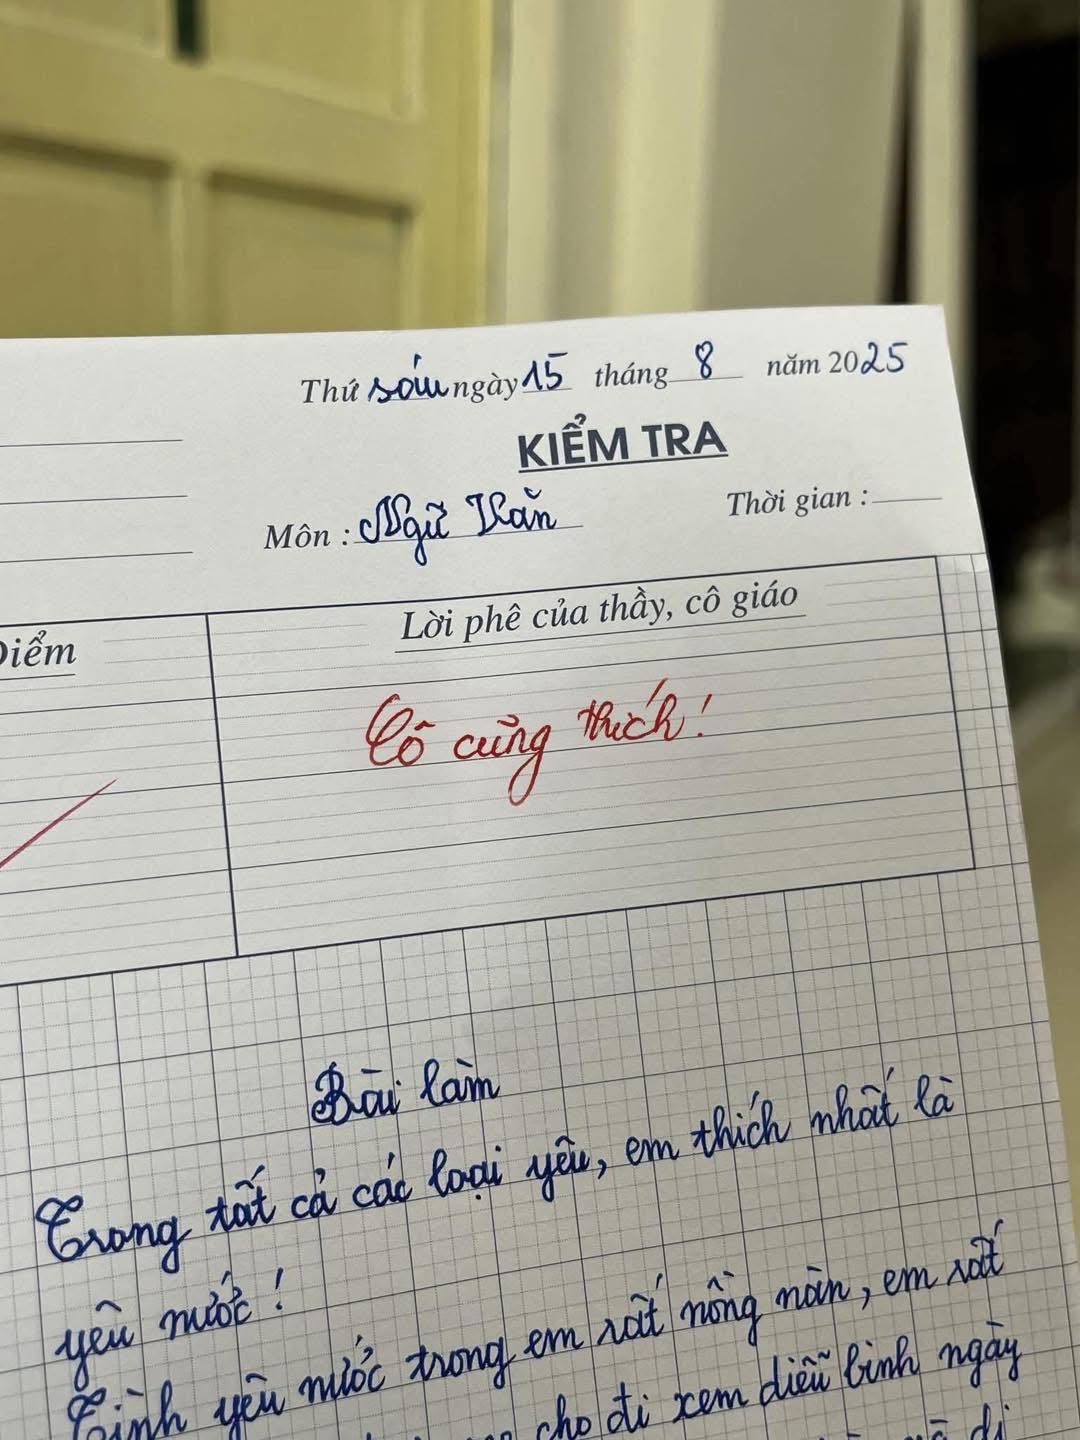 Thứ sáu ngày 15 tháng 8 năm 2025
KIỂM TRA
Môn : Ngữ Văn Thời gian :
Điểm
Lời phê của thầy, cô giáo
Cô cũng thích!
Bài làm
Trong tất cả các loại yêu, em thích nhất là
yêu nước!
Tình yêu nước trong em rất nồng nàn, em rất
cho đi xem diễu binh ngày
đi